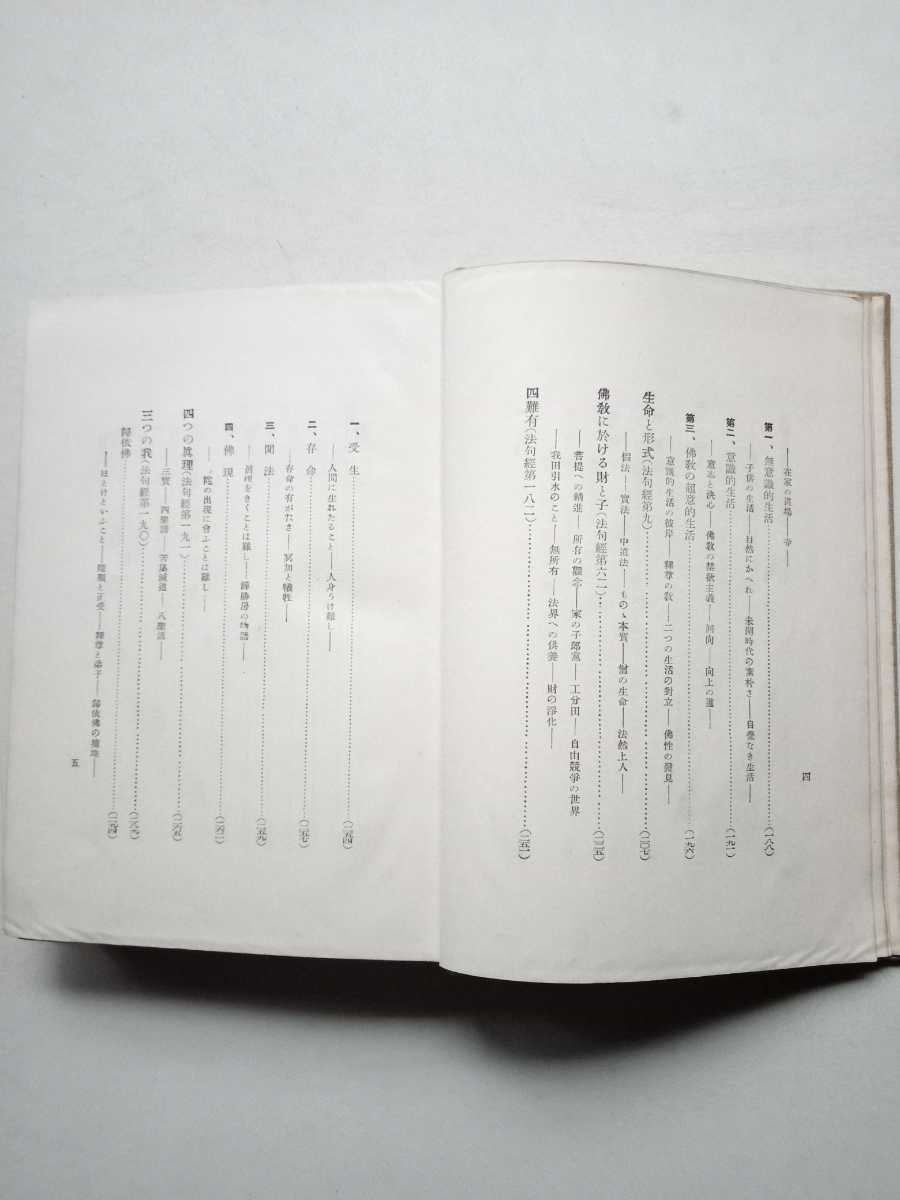 ——在家の道場——寺——
第一、無意識的生活……………(一八八)
——子供の生活——自然にかへれ——未開時代の素朴さ——自覺なき生活——
第二、意識的生活……………(一九一)
——意志と決心——佛敎の禁欲主義——囘向——向上の道——
第三、佛敎の超意的生活……………(一九六)
——意識的生活の彼岸——釋尊の敎——二つの生活の對立——佛性の發見——
生命と形式(法句經第九)……………(二〇七)
——假法——實法——中道法——もの、本質——僧の生命——法然上人——
佛敎に於ける財と子(法句經第六二)……………(二三五)
——菩提への精進——所有の觀念——家の子郎黨——工分田——自由競爭の世界
——我田引水のこと——無所有——法界への供養——財の淨化——
四難有(法句經第一八二)……………(二五一)
四
一、受生……………(二五四)
——人間に生れたること——人身うけ難し——
二、存命……………(二五七)
——存命の有がたさ——冥加と犧牲——
三、聞法……………(二五九)
——眞理をきくことは難し——歸勝房の物語——
四、佛現……………(二六二)
——佛陀の出現に會ふことは難し——
四つの眞理(法句經第一九一)……………(二六五)
——三寶——四聖諦——苦集滅道——八聖道——
三つの我(法句經第一九〇)……………(二八九)
歸依佛……………(二九四)
——ほとけといふこと——釋尊と弟子——歸依佛の
五